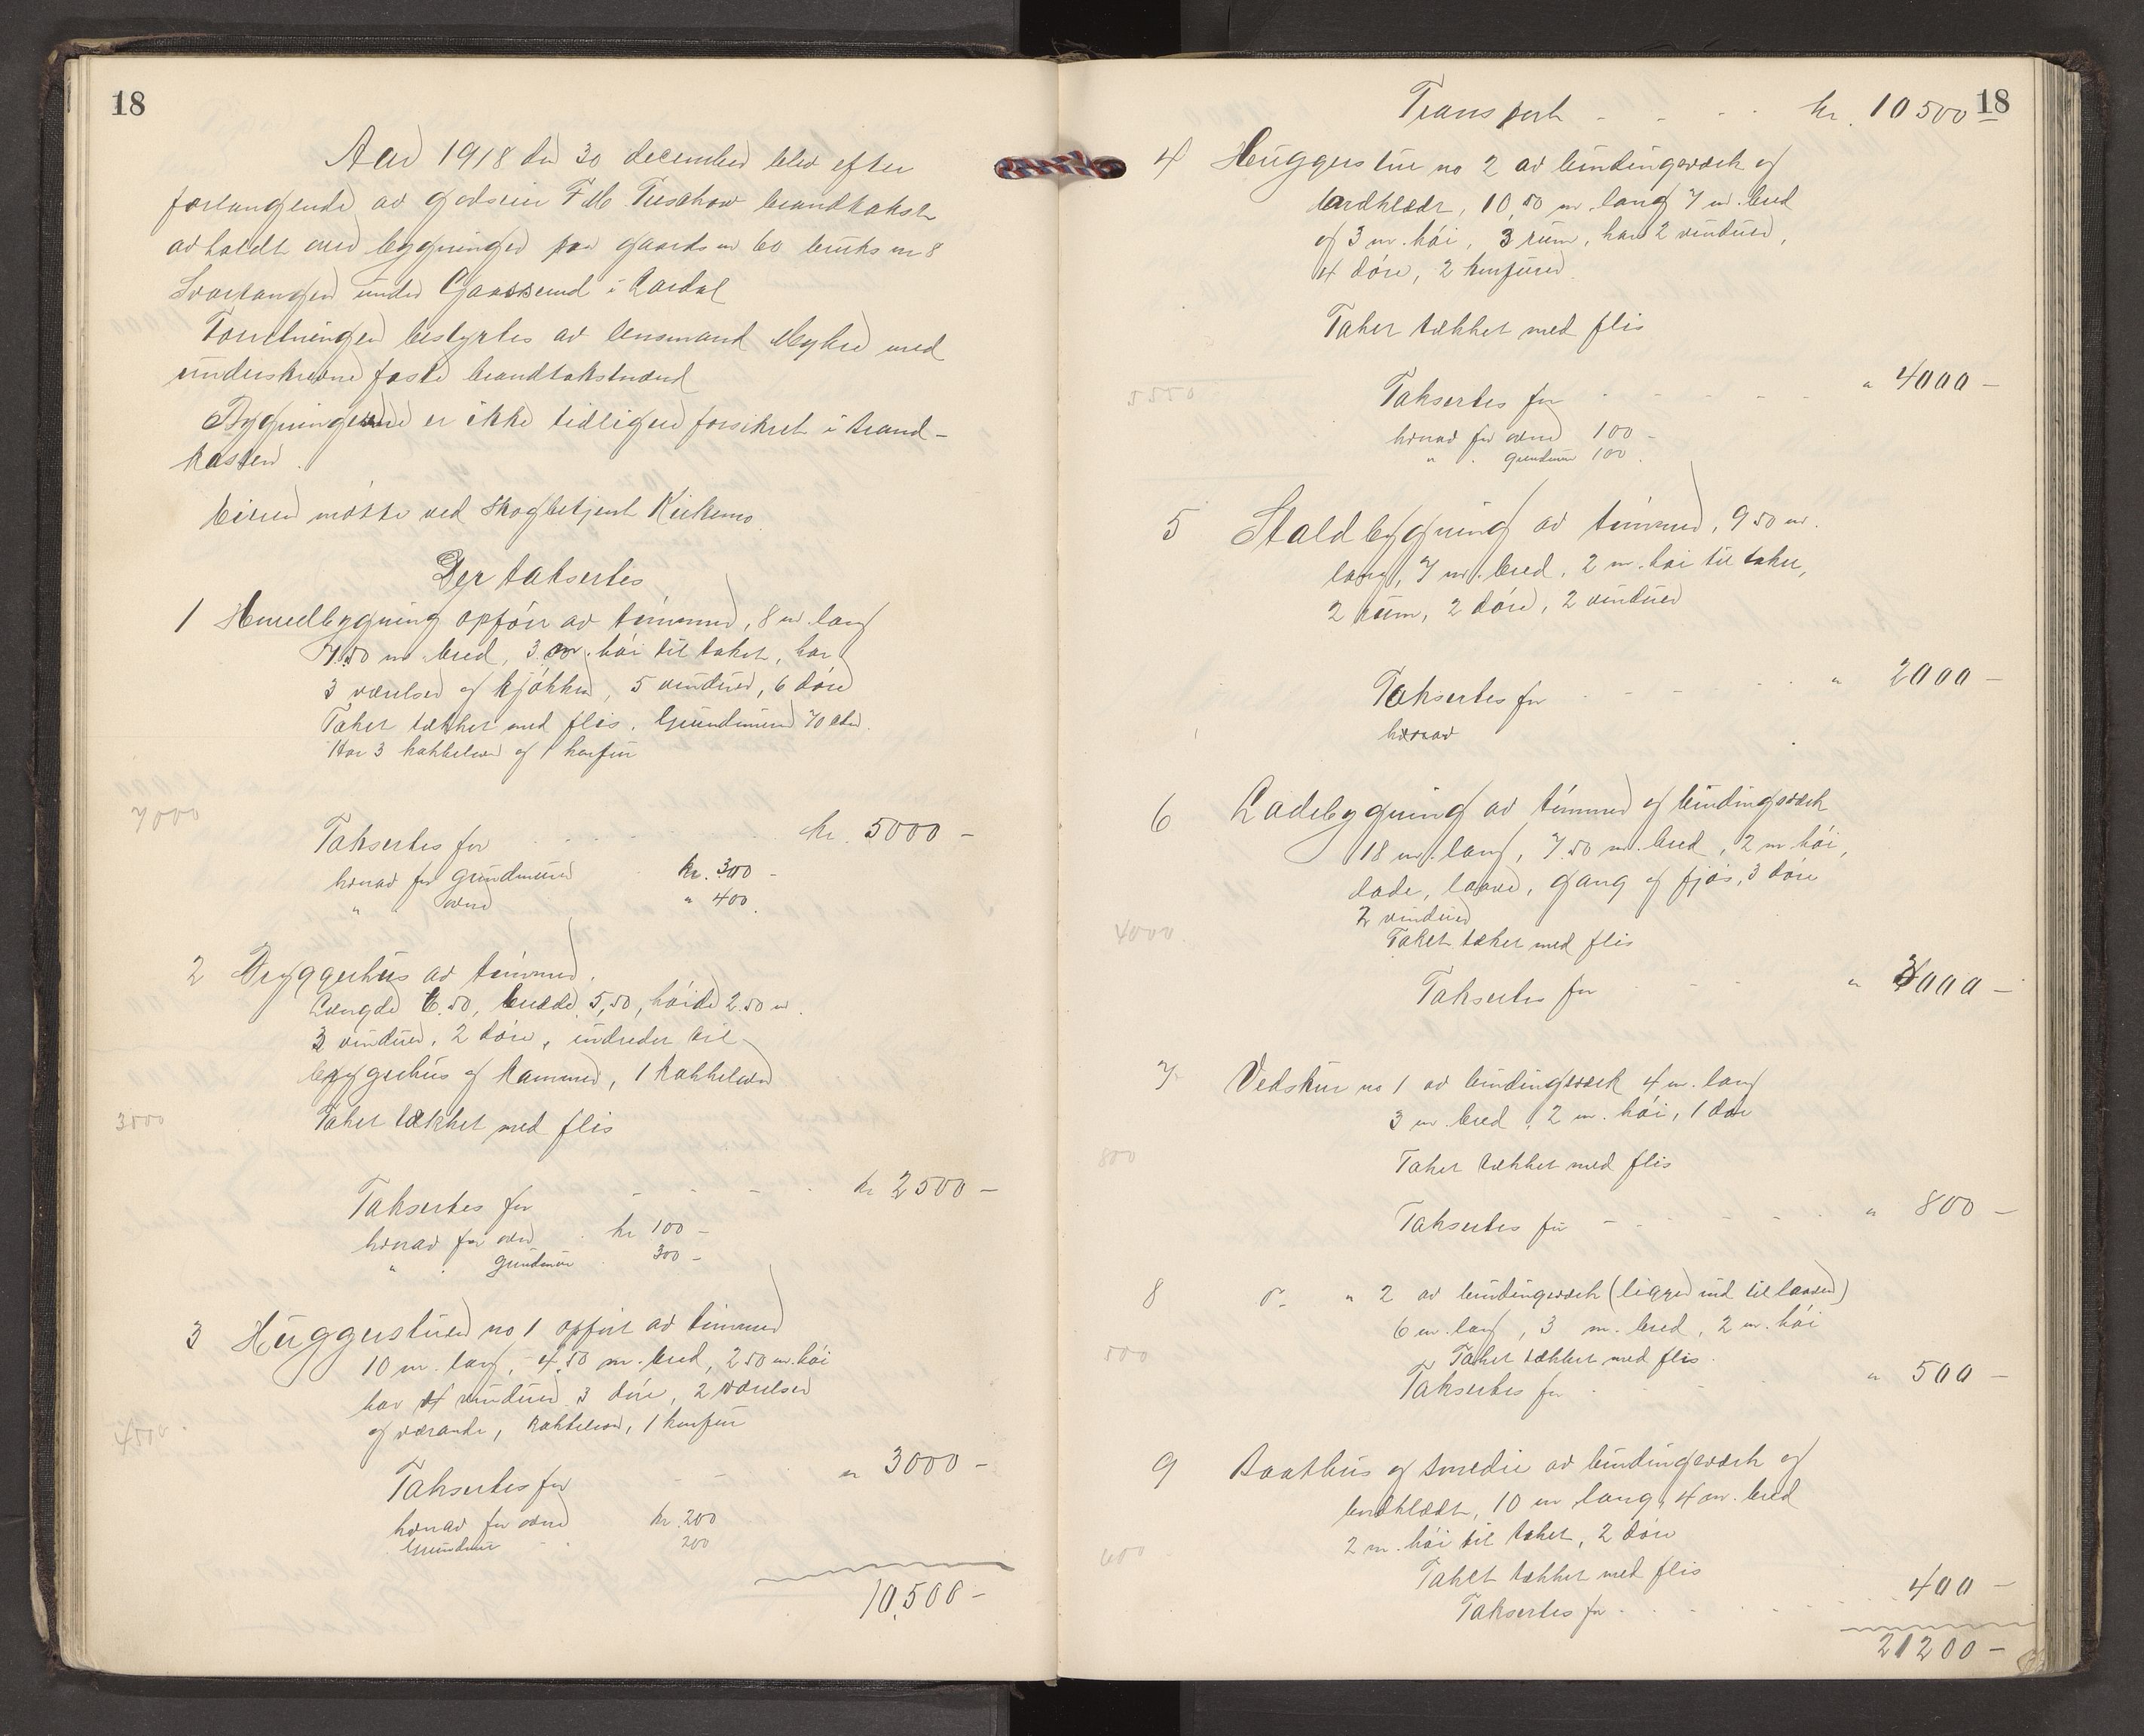 18
Aar 1918 den 30 december blev efter
forlangende av godseier F. M. Treschow brandtakst
avholdt over bygninger paa gaards nr 60 bruks nr 8
Svartangen under Gaasserud i Lardal
Forretningen bestyrtes av lensmand Myhre med
underskrevne faste brandtakstmænd
Bygningerne er ikke tidligere forsikret i brand-
kassen.
Eieren møtte ved skogbetjent Kirkemo.
Der taksertes
1 Hovedbygning opført av tømmer, 8 m. lang
7.50 m. bred, 3 m. høi til taket, har
3 værelser og kjøkken, 5 vinduer, 6 døre
Taket tækket med flis. Grundmuren 70
Har 3 kakkelovn og 1 komfur
7000
Taksertes for kr. 5000 -
hvorav for grundmuren kr. 300 -
" " ovne " 400.
2 Bryggerhus av tømmer.
Længde 6.50, bredde 5,50, høide 2.50 m.
3 vinduer, 2 døre, indredet til
bryggerhus og kammer, 1 kakkelovn
Taket tækket med flis
3000
Taksertes for kr 2500 -
hvorav for ovn kr 100 -
" grundmur 300 -
3 Huggerstuen no 1 opført av tømmer
10 m. lang, 4.50 m. bred, 2.50 m. høi
har 4 vinduer 3 døre, 2 værelser
og veranda, kakkelovn, 1 komfur
4500
Taksertes for " 3000 -
hvorav for ovne kr. 200
Grundmur 200
10,500 -
18
Transport kr. 10500
4 Huggerstue no 2 av bindingsverk og
bordklædt, 10,50 m. lang 7 m. bred
og 3 m. høi, 3 rum, har 2 vinduer,
4 døre, 2 komfurer.
Taket tækket med flis
5550
Taksertes for " 4000 -
hvorav for ovne 100 -
" " grundmur 100.
5 Staldbygning av tømmer, 9.50 m.
lang, 7 m. bred, 2 m. høi til taket,
2 rum, 2 døre, 2 vinduer
Taksertes for " 2000 -
hvorav
6 Ladebygning av tømmer og bindingsverk
18 m. lang, 7.50 m. bred, 2 m høi,
lade, laave, gang og fjøs, 3 døre
2 vinduer
Taket tæket med flis
4000
Taksertes for " 3000 -
7 Vedskur no 1 av bindingsverk 4 m. lang
3 m. bred, 2 m. høi, 1 dør
Taket tækket med flis
800
Taksertes for " 800 -
8 do " 2 av bindingsverk (ligger ind til laaven)
6 m. lang, 3 m. bred, 2 m. høi
Taket tækket med flis.
500
Taksertes for " 500 -
9 Baathus og smedie av bindingsverk og
bordklædt, 10 m lang, 4 m. bred
2 m. høi til taket, 2 døre
600
Taket tækket med flis
Taksertes for 400 -
21200 -